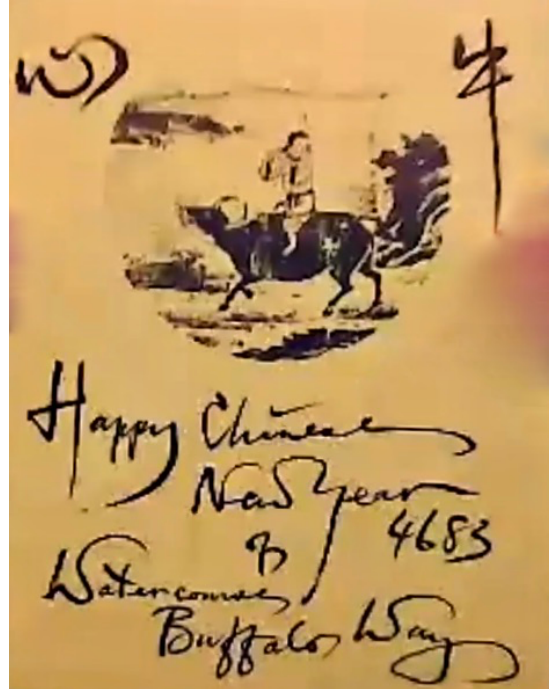 牛
Happy Chinese
New Year
of 4683
Watercourse
Buffalo Way